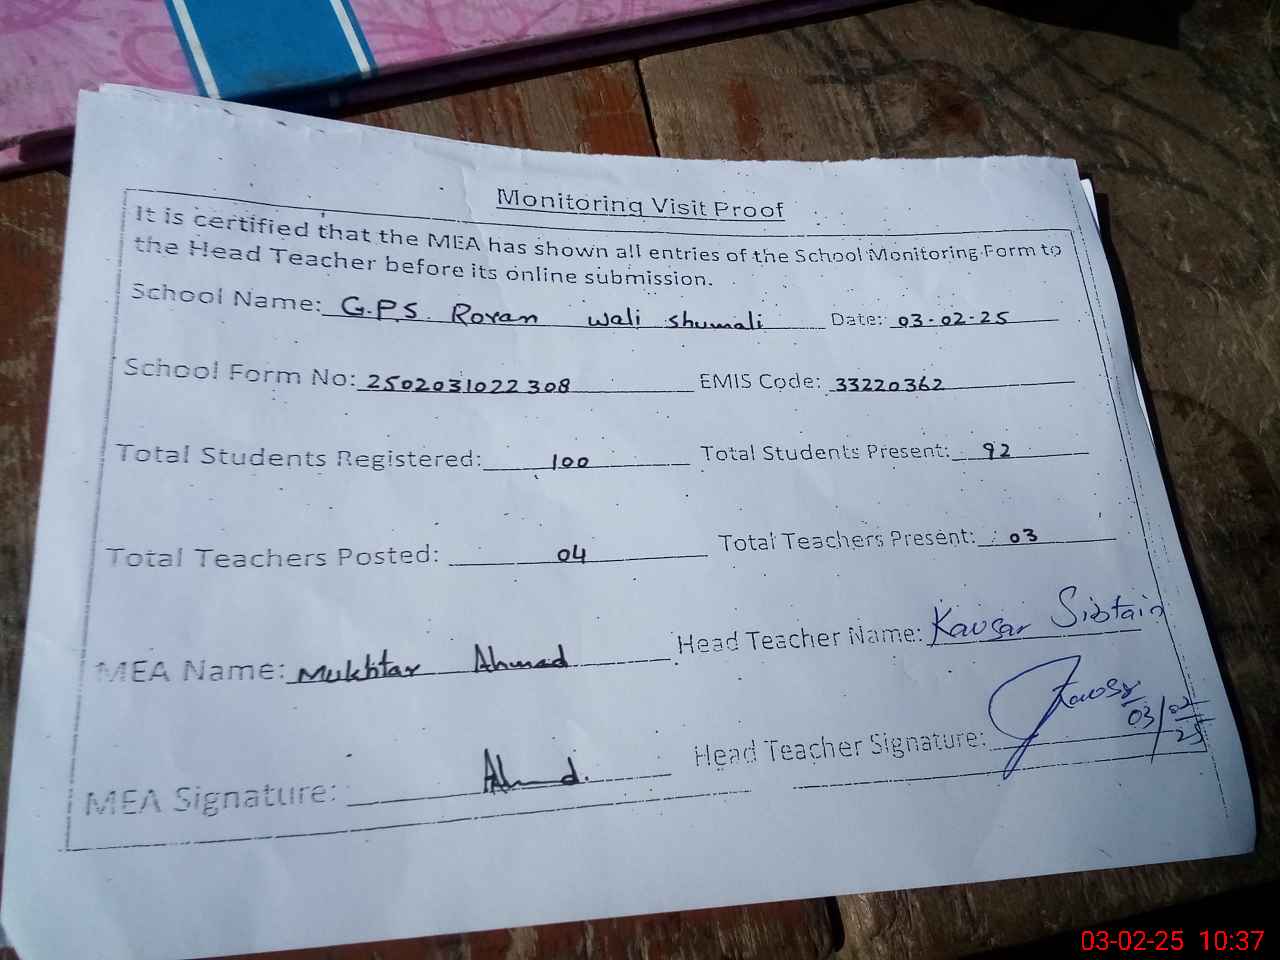 Monitoring Visit Proof
It is certified that the MEA has shown all entries of the School Monitoring Form to
the Head Teacher before its online submission.
School Name: G.P.S. Rovan Wali Shumali Date: 03-02-25
School Form No: 2502031022308 EMIS Code: 33220362
Total Students Registered: 100 Total Students Present: 92
Total Teachers Posted: 04 Total Teachers Present: 03
MEA Name: Mukhtar Ahmad Head Teacher Name: Kausar Sibtain
MEA Signature: Ahmd. Head Teacher Signature: 03/02/25
03-02-25 10:37